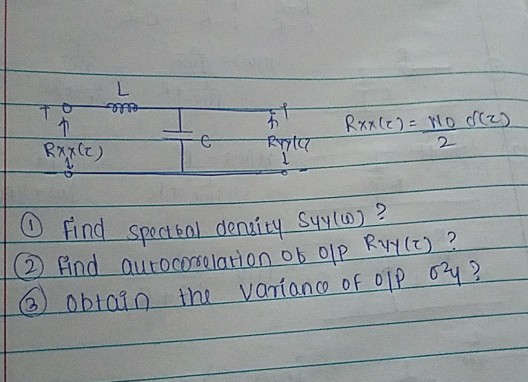 L
+ +
Rxx(τ) C Ryy(τ) Rxx(τ) = N0/2 δ(τ)
① Find spectral density Syy(ω) ?
② Find autocorrelation of o/p Ryy(τ) ?
③ obtain the variance of o/p σ²y ?